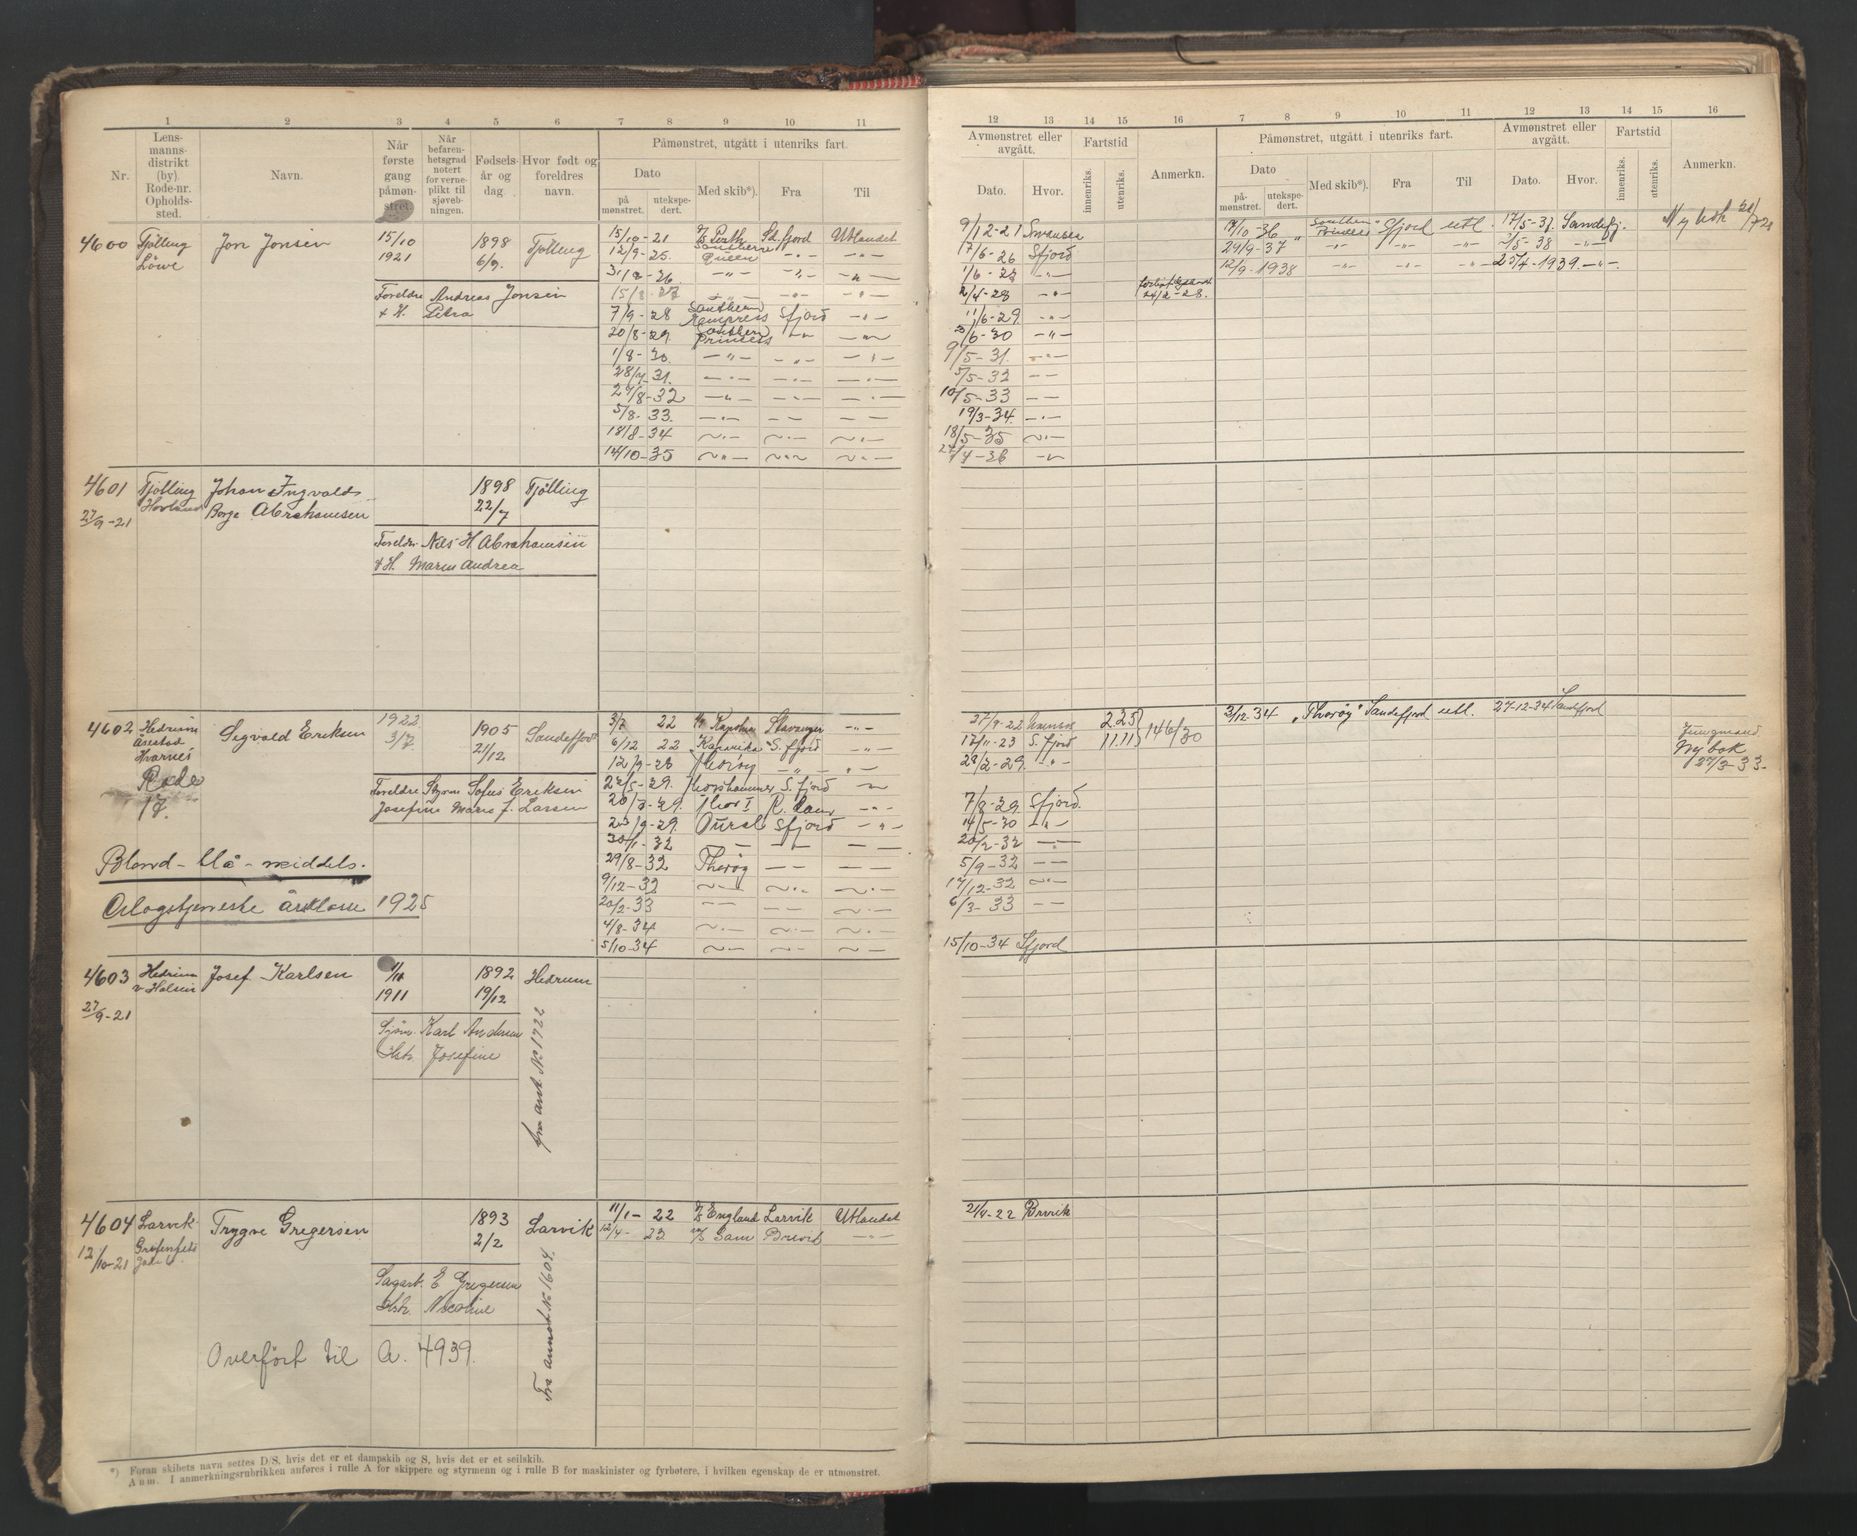 1 2 3 4 5 6 7 8 9 10 11
Nr.
Lens-
manns-
distrikt
(by).
Rode-nr.
Opholds-
sted.
Navn.
Når
første
gang
påmøn-
stret.
Når
befaren-
hetsgrad
notert
for verne-
plikt til
sjøveb-
ningen.
Fødsels-
år og
dag.
Hvor født og
foreldres
navn.
Påmønstret, utgått i utenriks fart.
Dato
på
mønstret.
utekspe-
dert.
Med skib*).
Fra
Til
4600 Tjölling Jon Jonsen 15/10 1898 Tjölling
Löwe 1921 6/9.
Foreldre Andreas Jonsen
& H. Petra
15/10-21 D/S Perth Sd.fjord Utlandet
12/9-25. Southern Queen -"- -"-
7/9-28 Southern Empress Sfjord -"-
20/8-29. Southern Princess -"- -"-
1/8-30. -"- -"- -"-
28/7-31. -"- -"- -"-
29/8-32 -"- -"- -"-
5/8-33. -"- -"- -"-
18/8-34 -"- -"- -"-
14/10-35 -"- -"- -"-
4601 Tjölling Johan Ingvalds 1898 Tjölling
27/9-21 Hovland Borge Abrahamsen 22/7
Foreldre Nils H Abrahamsen
& H. Maren Andrea
4602 Hedrum Sigvald Eriksen 1922 1905 Sandefjord
3/7. 21/12
Kvarnes
Rode
17.
Foreldre Styrm Sofus Eriksen
Josefine Marie f. Larsen
3/7 22 Stavanger -"-
6/12 22 S.fjord -"-
12/9-28 Thorøy -"- -"-
22/5-29. Thorshammer S.fjord -"-
20/8-29. Thor I
23/9-29. Oural Sfjord -"-
30/1-32 — — —
29/8-32 Thorøy — —
9/12-32 -"- -"- -"-
20/2-33
4/8-34 -"- -"- -"-
5/10-34 -"- -"- -"-
Blond - blå - middels.
Orlogstjeneste årsklasse 1925
4603 Hedrum Josef Karlsen 1/11 1892 Hedrum
27/9-21 1911 19/12
Sjöm. Karl Andersen
Hstr. Josefine
fra annt No 1722
4604 Larvik Trygve Gregersen 1893 Larvik
12/10-21 2/2
Sagarb. E Gregersen
Hstr. Nicoline
Fra annot No 1604.
11/1- 22 D/S England Larvik Utlandet
12/4- 23. M/S Sam Brevik -"-
Overført til A. 4939.
*) Foran skibets navn settes D/S, hvis det er et dampskib og S, hvis det er et seilskib.
Anm. I anmerkningsrubrikken anføres i rulle A for skippere og styrmenn og i rulle B for maskinister og fyrbøtere, i hvilken egenskap de er utmønstret.
12 13 14 15 16 7 8 9 10 11 12 13 14 15 16
Avmønstret eller
avgått.
Fartstid
Dato.
Hvor.
innenriks.
utenriks.
Anmerkn.
Påmønstret, utgått i utenriks fart.
Dato
på-
mønstret.
utekspe-
dert.
Med skib*).
Fra
Til
Avmønstret eller
avgått.
Dato.
Hvor.
Fartstid
innenriks.
utenriks.
Anmerkn.
9/12-21 Swansea
17/6-26 Sfjord
2/4-28 -"-
24/2-28.
11/6-29. -"-
/6-30 -"-
9/5-31. -"-
5/5-32 — —
10/5-33 — —
19/3-34. -"-
18/5-35 -"-
/10-36 Southern Princess Sfjord utl. 17/5-37. Sandefj.
29/9-37 -"- -"- -"- /5-38 -"-
12/9-1938 -"- -"- -"- 25/4-1939. -"-
Ny bok
27/9-22 2.25
17/11-23 S.fjord 11.11 146/30
28/2-29. -"-
7/8-29. Sfjord.
14/5-30 -"-
20/2-32
5/9-32 — —
17/12-32 -"-
6/3-33 — —
15/10-34 Sfjord
3/12-34 "Thorøy" Sandefjord utl. 27-12-34 Sandefjord
Jungmand.
Ny bok
27/3-33-
21/4-22 Brevik